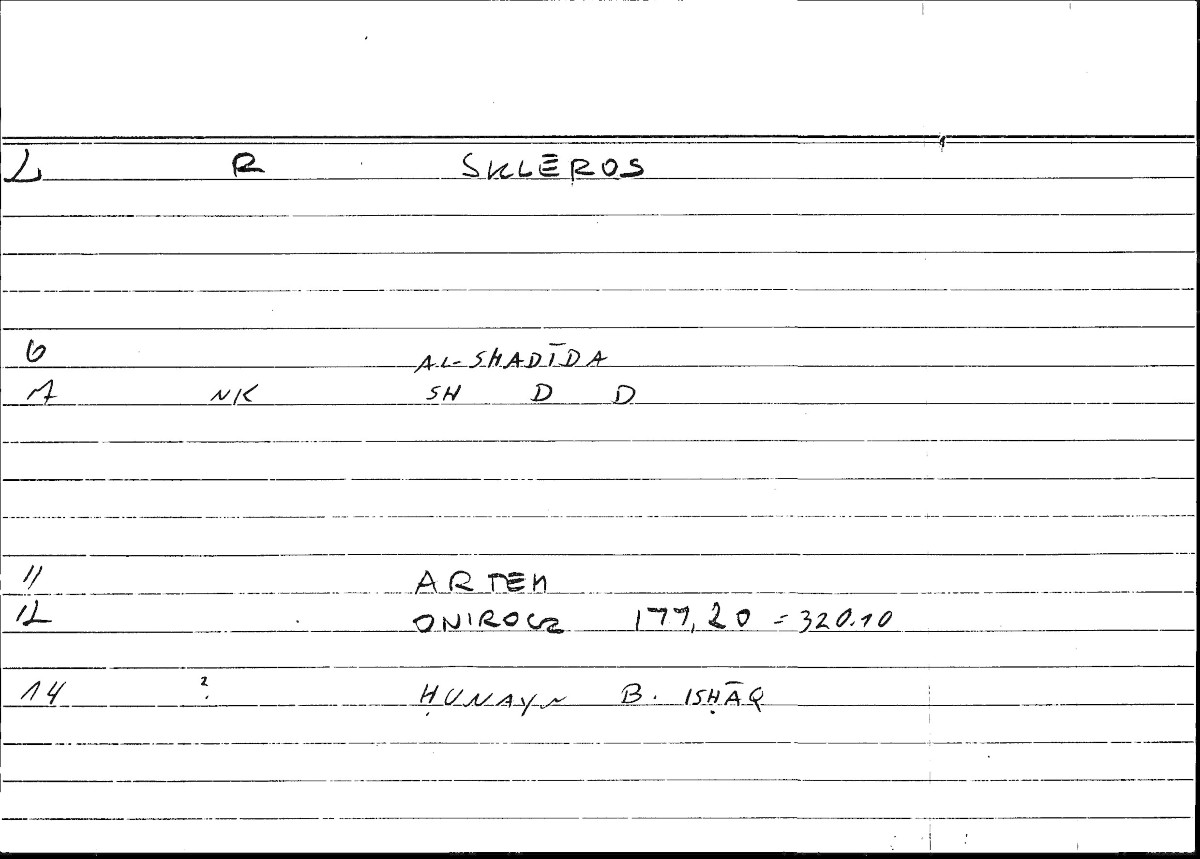 2 R SKLĒROS
6 AL-SHADĪDA
7 NK SH D D
11 ARTEM
12 ONIROCR 177,20 = 320.10
14 2 ḤUNAYN B. ISḤĀQ